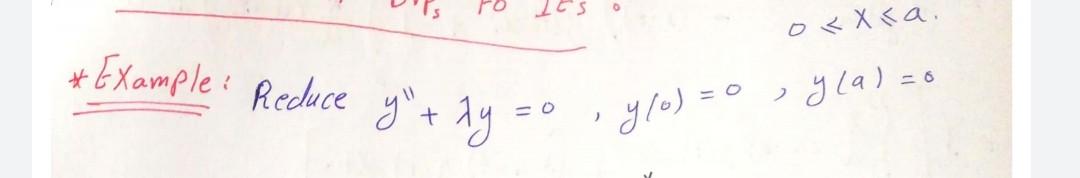 to IEs.
0 ≤ x ≤ a.
* Example: Reduce y" + λy = 0 , y(0) = 0 , y(a) = 0